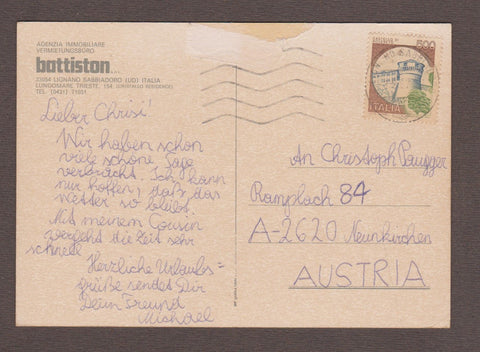 AGENZIA IMMOBILIARE
VERMIETUNGSBÜRO
battiston...
33054 LIGNANO SABBIADORO (UD) ITALIA
LUNGOMARE TRIESTE, 154 (CRISTALLO RESIDENCE)
TEL. (0431) 71031
Lieber Chrisi!
Wir haben schon
viele schöne Tage
verbracht. Ich kann
nur hoffen, daß das
Wetter so bleibt.
Mit meinem Cousin
vergeht die Zeit sehr
schnell
Herzliche Urlaubs=
grüße sendet Dir
Dein Freund
Michael
500
ITALIA
An Christoph
Ramplach 84
A-2620 Neunkirchen
AUSTRIA